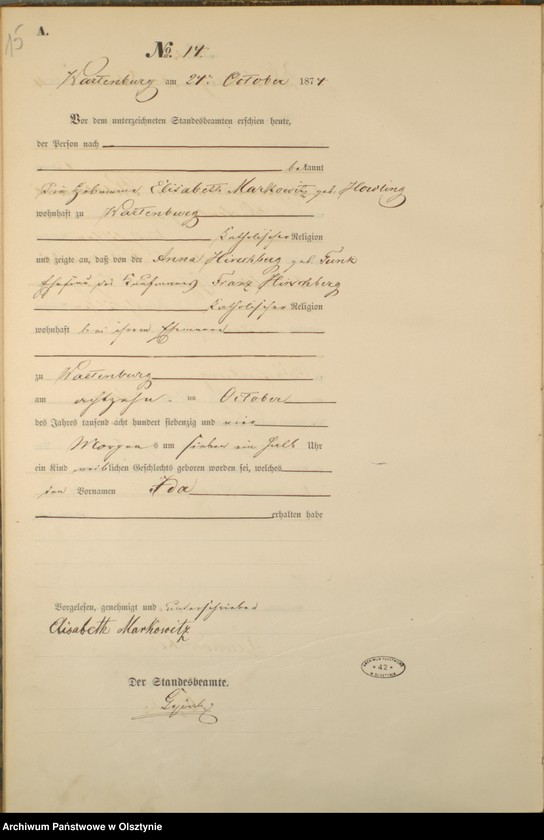 15
A.
No. 14.
Wartenburg am 24ten October 1874
Vor dem unterzeichneten Standesbeamten erschien heute,
der Person nach
bekannt
die Hebamme Elisabeth Markowitz geb.
wohnhaft zu Wartenburg
katholischer Religion
und zeigte an, daß von der Anna Hirschberg geb. Funk
Ehefrau des Kaufmanns Franz Hirschberg
katholischer Religion
wohnhaft bei ihrem Ehemanne
zu Wartenburg
am achtzehn ten October
des Jahres tausend acht hundert siebenzig und vier
Morgens um sieben ein halb Uhr
ein Kind weiblichen Geschlechts geboren worden sei, welches
den Vornamen Ida
erhalten habe
Vorgelesen, genehmigt und unterschrieben
Elisabeth Markowitz
Der Standesbeamte.
ARCHIWUM PAŃSTWOWE
42
W OLSZTYNIE
Archiwum Państwowe w Olsztynie